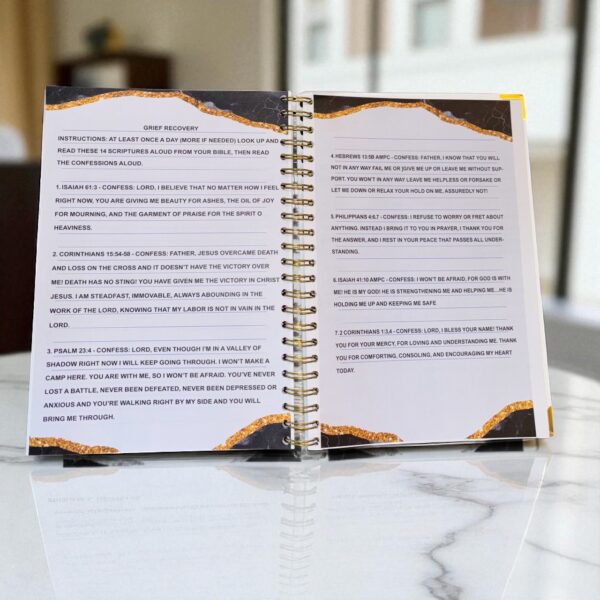 GRIEF RECOVERY
INSTRUCTIONS: AT LEAST ONCE A DAY (MORE IF NEEDED) LOOK UP AND
READ THESE 14 SCRIPTURES ALOUD FROM YOUR BIBLE, THEN READ
THE CONFESSIONS ALOUD.
1. ISAIAH 61:3 - CONFESS: LORD, I BELIEVE THAT NO MATTER HOW I FEEL
RIGHT NOW, YOU ARE GIVING ME BEAUTY FOR ASHES, THE OIL OF JOY
FOR MOURNING, AND THE GARMENT OF PRAISE FOR THE SPIRIT O
HEAVINESS.
2. CORINTHIANS 15:54-58 - CONFESS: FATHER, JESUS OVERCAME DEATH
AND LOSS ON THE CROSS AND IT DOESN'T HAVE THE VICTORY OVER
ME! DEATH HAS NO STING! YOU HAVE GIVEN ME THE VICTORY IN CHRIST
JESUS. I AM STEADFAST, IMMOVABLE, ALWAYS ABOUNDING IN THE
WORK OF THE LORD, KNOWING THAT MY LABOR IS NOT IN VAIN IN THE
LORD.
3. PSALM 23:4 - CONFESS: LORD, EVEN THOUGH I'M IN A VALLEY OF
SHADOW RIGHT NOW I WILL KEEP GOING THROUGH. I WON'T MAKE A
CAMP HERE. YOU ARE WITH ME, SO I WON'T BE AFRAID. YOU'VE NEVER
LOST A BATTLE, NEVER BEEN DEFEATED, NEVER BEEN DEPRESSED OR
ANXIOUS AND YOU'RE WALKING RIGHT BY MY SIDE AND YOU WILL
BRING ME THROUGH.
4. HEBREWS 13:5B AMPC - CONFESS: FATHER, I KNOW THAT YOU WILL
NOT IN ANY WAY FAIL ME OR [GIVE ME UP OR LEAVE ME WITHOUT SUP-
PORT. YOU WON'T IN ANY WAY LEAVE ME HELPLESS OR FORSAKE OR
LET ME DOWN OR RELAX YOUR HOLD ON ME, ASSUREDLY NOT!
5. PHILIPPIANS 4:6,7 - CONFESS: I REFUSE TO WORRY OR FRET ABOUT
ANYTHING. INSTEAD I BRING IT TO YOU IN PRAYER, I THANK YOU FOR
THE ANSWER, AND I REST IN YOUR PEACE THAT PASSES ALL UNDER-
STANDING.
6. ISAIAH 41:10 AMPC - CONFESS: I WON'T BE AFRAID, FOR GOD IS WITH
ME! HE IS MY GOD! HE IS STRENGTHENING ME AND HELPING ME...HE IS
HOLDING ME UP AND KEEPING ME SAFE
7. 2 CORINTHIANS 1:3,4 - CONFESS: LORD, I BLESS YOUR NAME! THANK
YOU FOR YOUR MERCY, FOR LOVING AND UNDERSTANDING ME. THANK
YOU FOR COMFORTING, CONSOLING, AND ENCOURAGING MY HEART
TODAY.